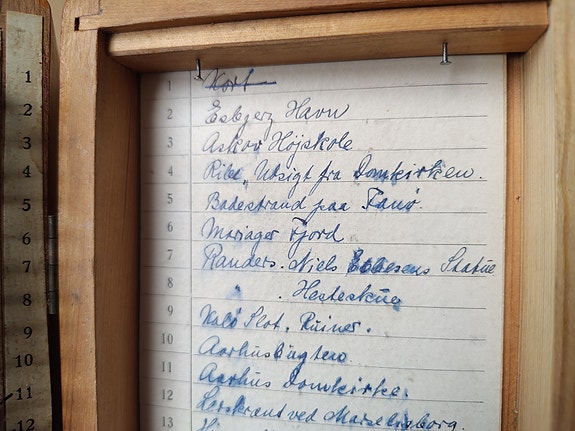 1 Kort
2 Esbjerg Havn
3 Askov Højskole
4 Ribe, Udsigt fra Domkirken.
5 Badestrand paa Fanø.
6 Mariager Fjord
7 Randers. Niels Ebbesens Statue
8 " . Hesteskue
9 Kalø Slot, Ruiner.
10 Aarhusbugten
11 Aarhus Domkirke.
12 ved Marselisborg.
13
1
2
3
4
5
6
7
8
9
10
11
12